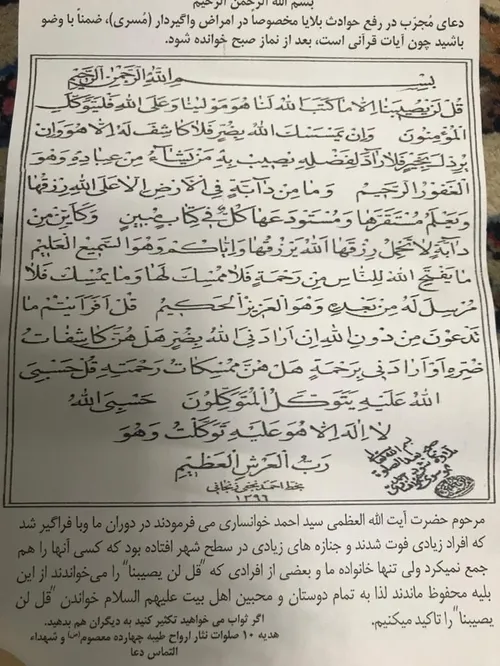 بسم الله الرحمن الرحیم
دعای مُجرّب در رفع حوادث بلایا مخصوصا در امراض واگیردار (مُسری)، ضمناً با وضو
باشید چون آیات قرآنی است، بعد از نماز صبح خوانده شود.
بِسْمِ اللهِ الرَّحْمٰنِ الرَّحيمِ
قُلْ لَنْ يُصيبَنا اِلاّ ما كَتَبَ اللهُ لَنا هُوَ مَوْلينا وَعَلَى اللهِ فَلْيَتَوَكَّلِ
الْمُؤْمِنُونَ وَاِنْ يَمْسَسْكَ اللهُ بِضُرٍّ فَلا كاشِفَ لَهُ اِلاّ هُوَ وَاِنْ
يُرِدْكَ بِخَيْرٍ فَلا رادَّ لِفَضْلِهِ يُصيبُ بِهِ مَنْ يَشاءُ مِنْ عِبادِهِ وَهُوَ
الْغَفُورُ الرَّحيمُ وَما مِنْ دابَّةٍ فِى الْاَرْضِ اِلاّ عَلَى اللهِ رِزْقُها
وَيَعْلَمُ مُسْتَقَرَّها وَمُسْتَوْدَعَها كُلٌّ فى كِتابٍ مُبينٍ وَكَاَيِّنْ مِنْ
دابَّةٍ لا تَحْمِلُ رِزْقَهَا اَللهُ يَرْزُقُها وَاِيّاكُمْ وَهُوَ السَّميعُ الْعَليمُ
ما يَفْتَحِ اللهُ لِلنّاسِ مِنْ رَحْمَةٍ فَلا مُمْسِكَ لَها وَما يُمْسِكْ فَلا
مُرْسِلَ لَهُ مِنْ بَعْدِهِ وَهُوَ الْعَزيزُ الْحَكيمُ قُلْ اَفَرَاَيْتُمْ ما
تَدْعُونَ مِنْ دُونِ اللهِ اِنْ اَرادَنِىَ اللهُ بِضُرٍّ هَلْ هُنَّ كاشِفاتُ
ضُرِّهِ اَوْ اَرادَنى بِرَحْمَةٍ هَلْ هُنَّ مُمْسِكاتُ رَحْمَتِهِ قُلْ حَسْبِىَ
اللهُ عَلَيْهِ يَتَوَكَّلُ الْمُتَوَكِّلُونَ حَسْبِىَ اللهُ
لا اِلٰهَ اِلاّ هُوَ عَلَيْهِ تَوَكَّلْتُ وَهُوَ
رَبُّ الْعَرْشِ الْعَظيمِ
بخط احمد نجفی زنجانی
١٣٩٦
مرحوم حضرت آیت الله العظمی سید احمد خوانساری می فرمودند در دوران ما وبا فراگیر شد
که افراد زیادی فوت شدند و جنازه های زیادی در سطح شهر افتاده بود که کسی آنها را هم
جمع نمیکرد ولی تنها خانواده ما و بعضی از افرادی که "قل لن یصیبنا" را می‌خواندند از این
بلیه محفوظ ماندند لذا به تمام دوستان و محبین اهل بیت علیهم السلام خواندن "قل لن
یصیبنا" را تاکید میکنیم.
اگر ثواب می خواهید تکثیر کنید به دیگران هم بدهید.
هدیه ۱۰ صلوات نثار ارواح طیبه چهارده معصوم(ص) و شهداء
التماس دعا